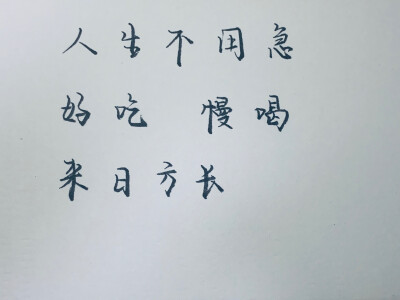 人生不用急
好吃 慢喝
来日方长